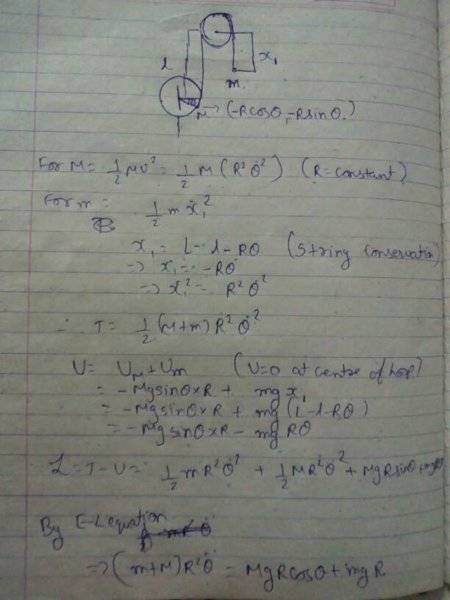 l
x₁
m
M → (-Rcosθ, -Rsinθ)
For M = 1/2 Mv² = 1/2 M (R²θ̇²) (R = constant)
For m = 1/2 m ẋ₁²
x₁ = L - l - Rθ (String conservation)
⇒ ẋ₁ = -Rθ̇
⇒ ẋ₁² = R²θ̇²
∴ T = 1/2 (M+m) R²θ̇²
U = U_M + U_m (U=0 at centre of hoop)
= -Mgsinθ×R + mg x₁
= -Mgsinθ×R + mg (L-l-Rθ)
= -Mgsinθ×R - mgRθ
L = T-U = 1/2 mR²θ̇² + 1/2 MR²θ̇² + MgRsinθ + mgRθ
By E-L equation
⇒ (m+M)R²θ̈ = MgRcosθ + mgR